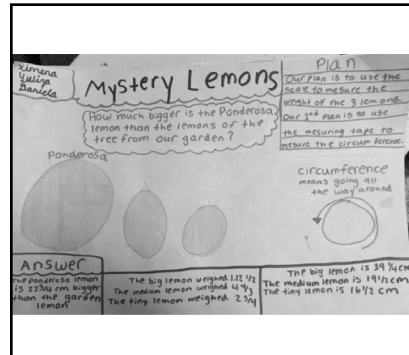 Ximena
Yuliza
Daniela
Mystery Lemons
How much bigger is the Ponderosa
lemon than the lemons of the
tree from our garden?
Plan
Our plan is to use the
scale to mesure the
weight of the 3 lemons.
Our 2nd plan is to use
the mesuring tape to
mesure the circum ference.
Ponderosa
circumference
means going all
the way around
Answer
The ponderosa lemon
is 22 3/4 cm bigger
than the garden
lemon
The big lemon weighed 1.12 1/2
The medium lemon weighed 4 4/3
The tiny lemon weighed 2 3/4
The big lemon is 39 1/4 cm
The medium lemon is 19 1/2 cm
The tiny lemon is 16 1/2 cm